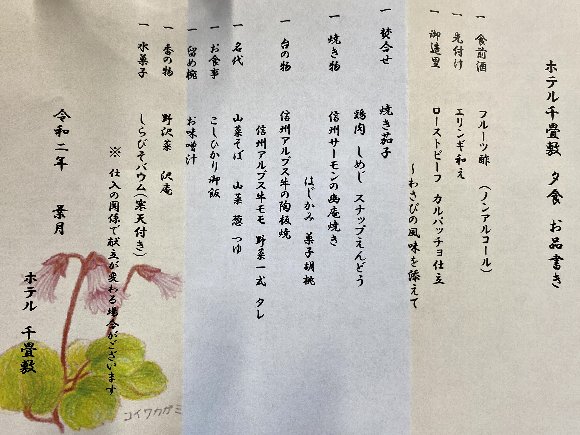 ホテル千畳敷 夕食 お品書き
一 食前酒 フルーツ酢 (ノンアルコール)
一 先付け エリンギ和え
一 御造里 ローストビーフ カルパッチョ仕立
～わさびの風味を添えて
一 焚合せ 焼き茄子
鶏肉 しめじ スナップえんどう
一 焼き物 信州サーモンの幽庵焼き
はじかみ 菓子胡桃
一 台の物 信州アルプス牛の陶板焼
信州アルプス牛モモ 野菜一式 タレ
一 名代 山菜そば 山菜 葱 つゆ
一 お食事 こしひかり御飯
一 留め椀 お味噌汁
一 香の物 野沢菜 沢庵
一 水菓子 しらびそバウム(寒天付き)
※ 仕入の関係で献立が変わる場合がございます
令和二年 葉月
ホテル 千畳敷
コイワカガミ